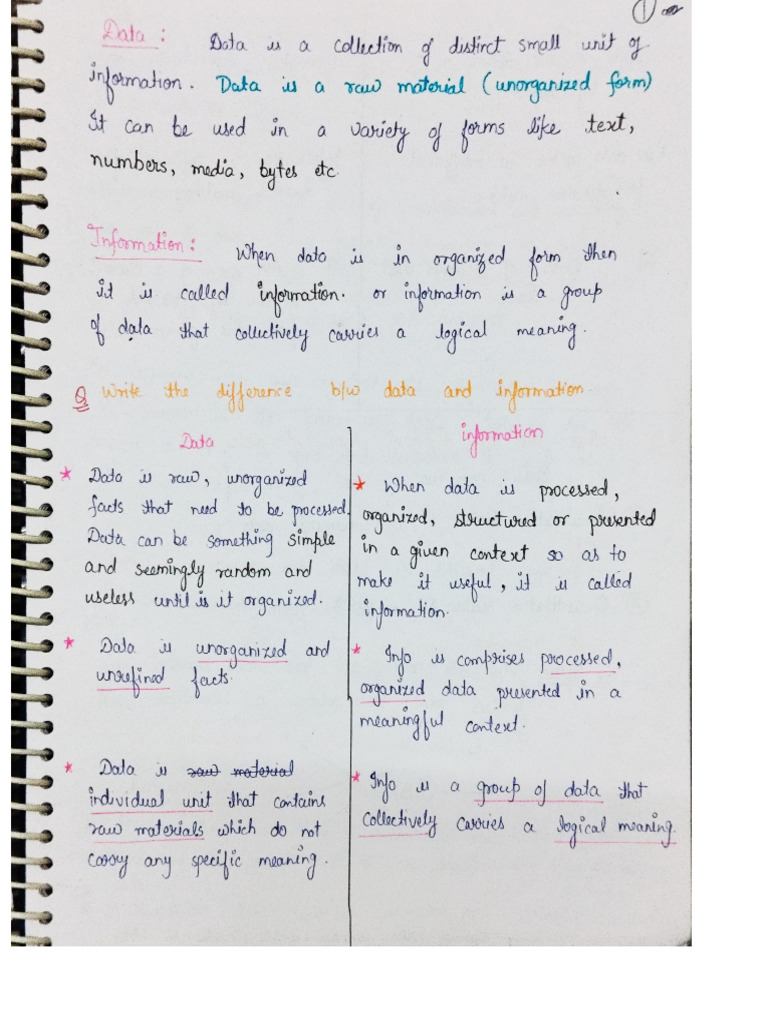 1
Data : Data is a collection of distinct small unit of
information. Data is a raw material (unorganized form)
It can be used in a variety of forms like text,
numbers, media, bytes etc.
Information : When data is in organized form then
it is called information. or information is a group
of data that collectively carries a logical meaning.
Q Write the difference b/w data and information
Data
* Data is raw, unorganized
facts that need to be processed.
Data can be something simple
and seemingly random and
useless until is it organized.
* Data is unorganized and
unrefined facts.
* Data is raw material
individual unit that contains
raw materials which do not
carry any specific meaning.
information
* When data is processed,
organized, structured or presented
in a given context so as to
make it useful, it is called
information.
* Info is comprises processed,
organized data presented in a
meaningful context.
* Info is a group of data that
collectively carries a logical meaning.